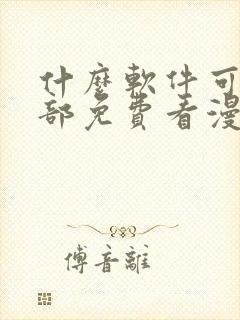 什麼軟件可
部免費看漫
傅音離